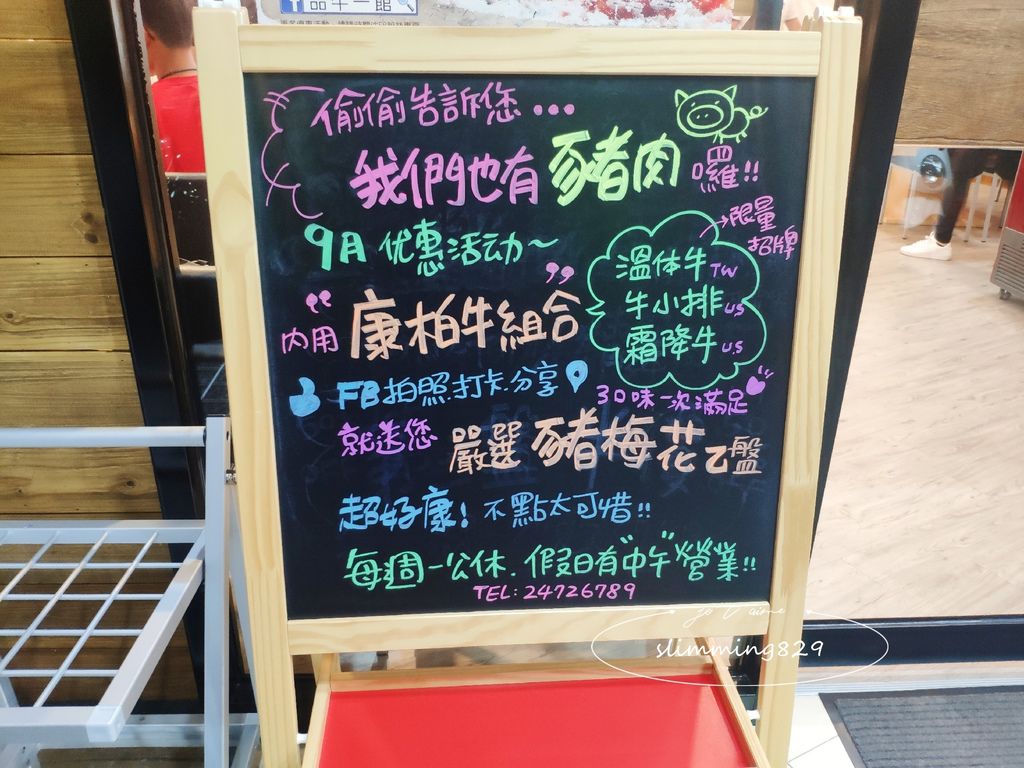 品牛一館
偷偷告訴您...
我們也有豬肉囉!!
9月优惠活动~
限量
招牌
溫体牛TW
牛小排US
霜降牛U.S
內用"康柏牛組合"
FB拍照.打卡.分享
30味一次滿足
就送您 嚴選豬梅花乙盤
超好康! 不點太可惜!!
每週一公休.假日有"中午"營業!!
TEL:24726789
slimming829